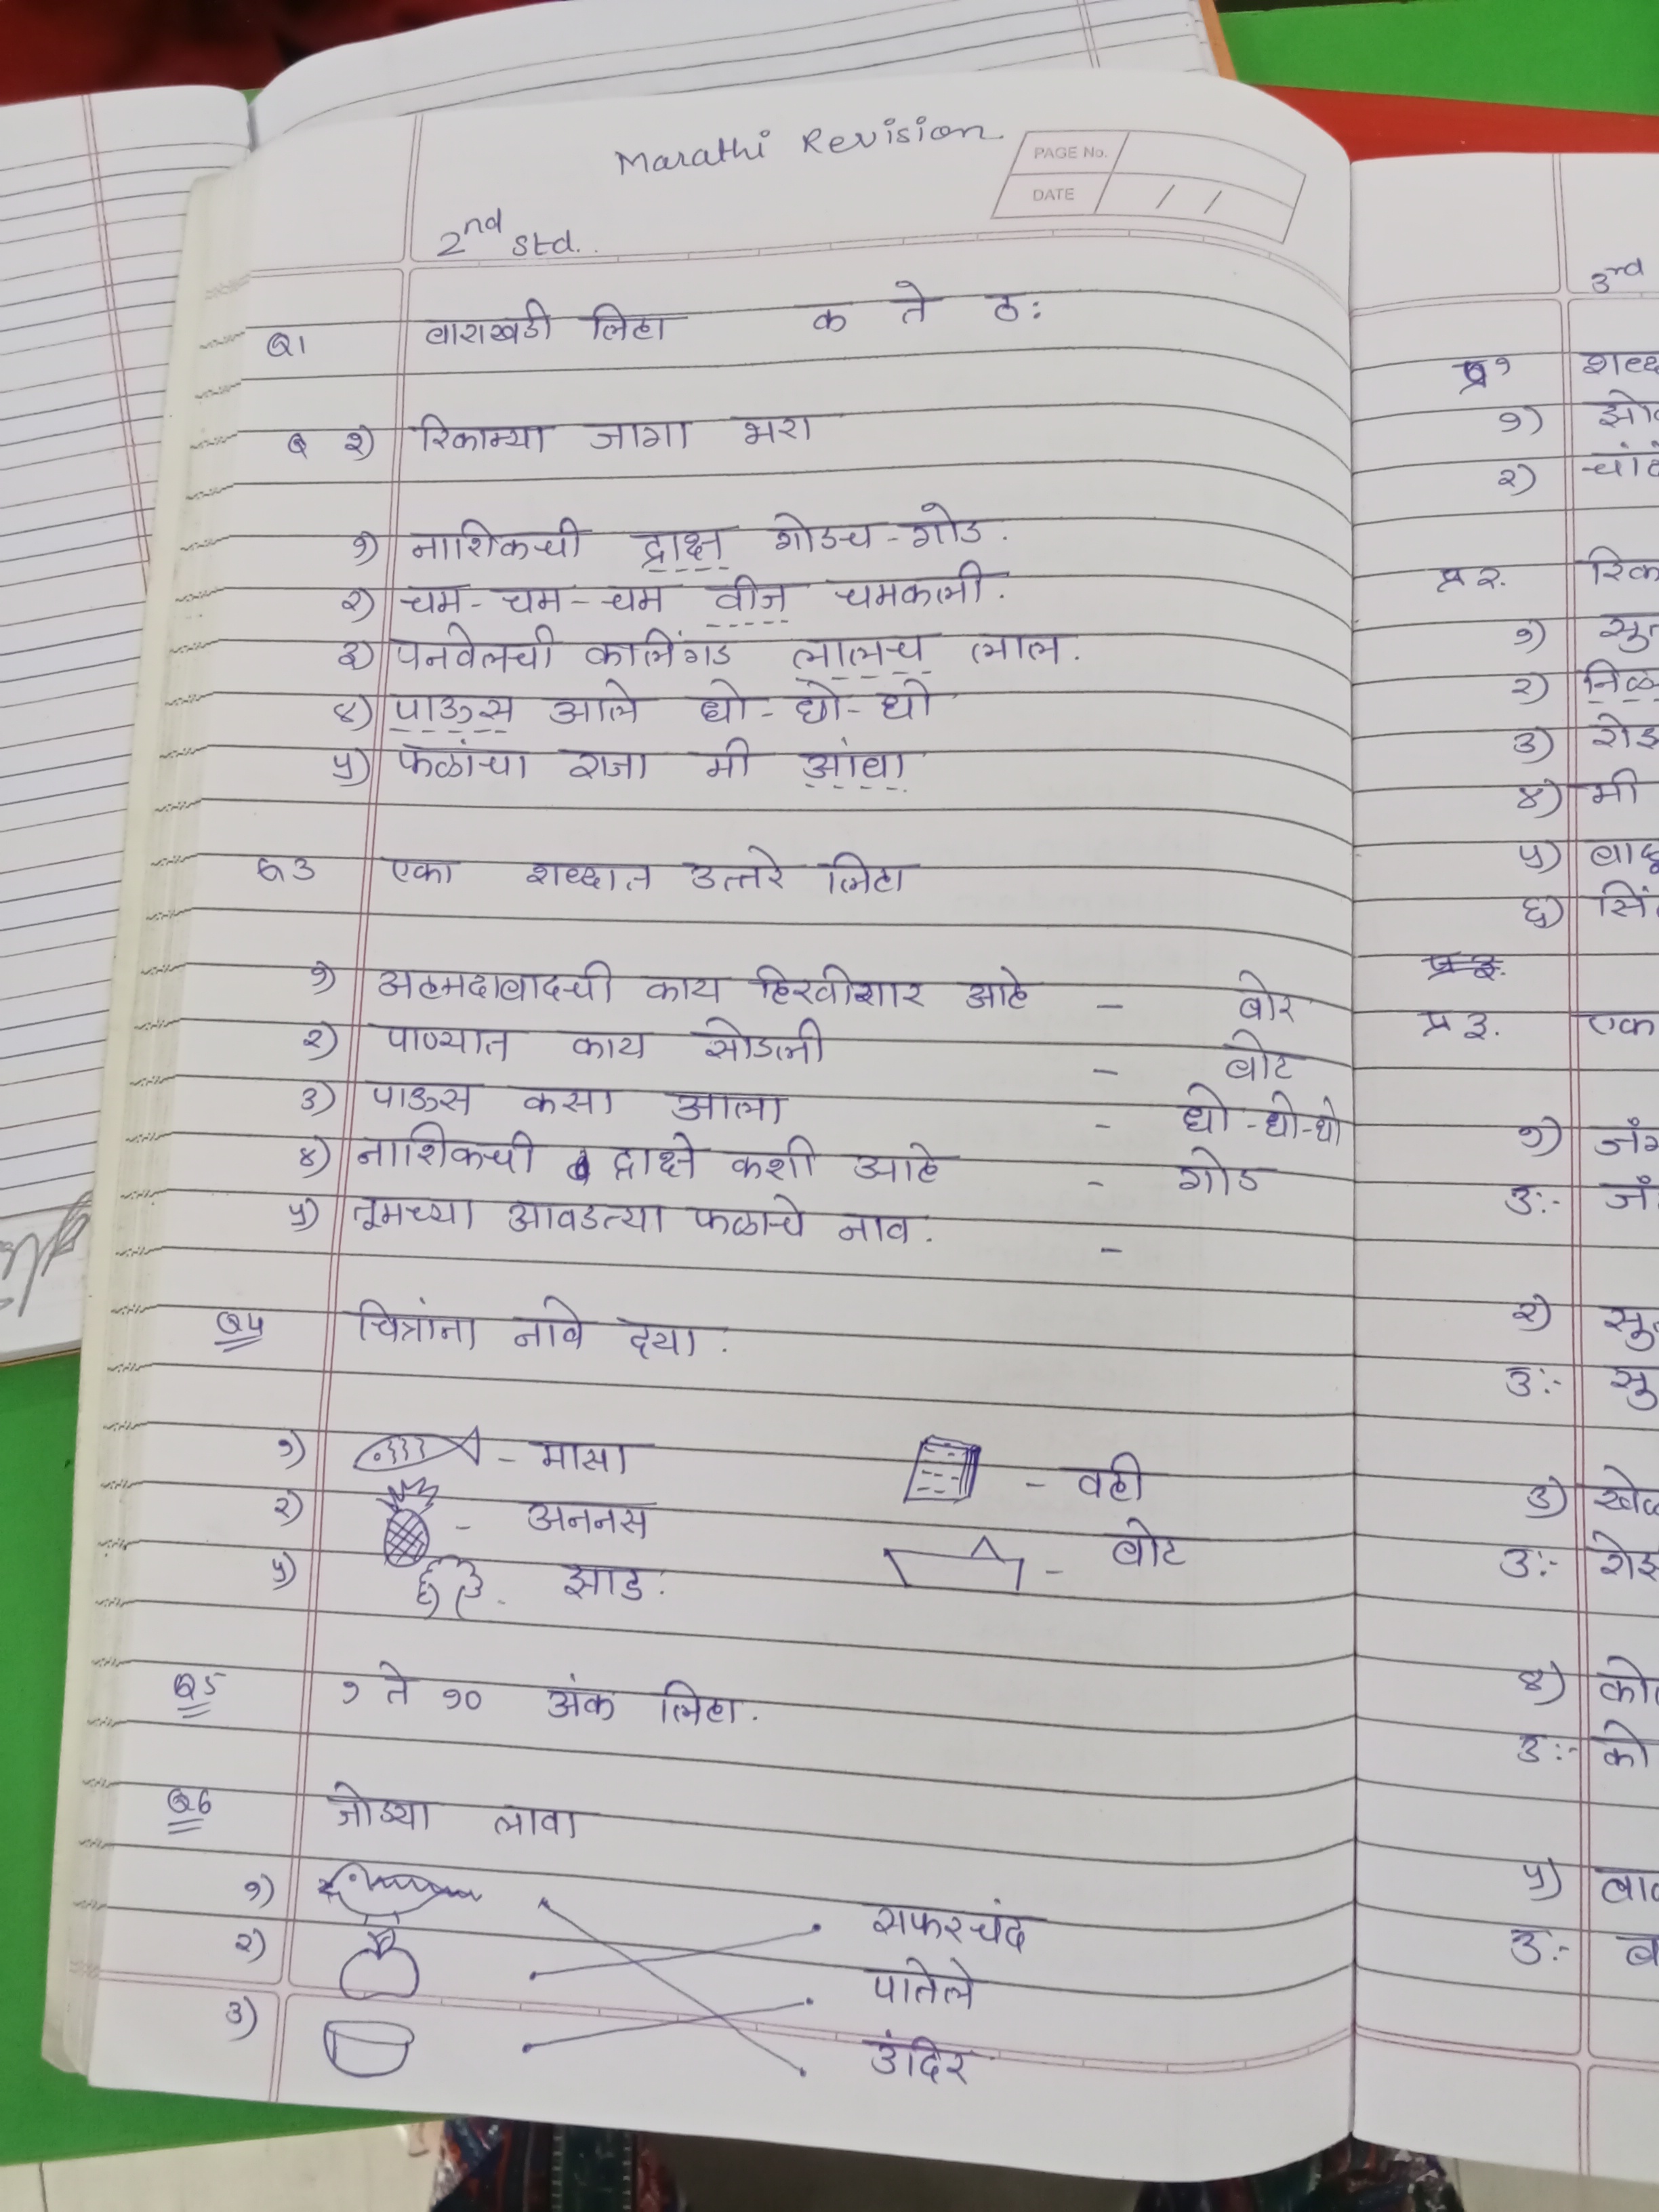 Marathi Revision
PAGE No.
DATE / /
2nd Std.
Q1 बाराखडी लिहा क ते ठ:
Q २) रिकाम्या जागा भरा
१) नाशिकची द्राक्ष गोडच-गोड.
२) चम-चम-चम वीज चमकली.
३) पनवेलची कलिंगड लालच लाल.
४) पाऊस आले धो-धो-धो
५) फळांचा राजा मी आंबा
Q3 एका शब्दात उत्तरे लिहा
१) अहमदाबादची काय हिरवीगार आहे - बोर
२) पाण्यात काय सोडली - बोट
३) पाऊस कसा आला - धो-धो-धो
४) नाशिकची द्राक्षे कशी आहे - गोड
५) तूमच्या आवडत्या फळाचे नाव. -
Q4 चित्रांना नावे दया.
१) - मासा - वही
२) - अननस - बोट
५) - झाड.
Q5 १ ते १० अंक लिहा.
Q6 जोड्या लावा
१) सफरचंद
२) पातेले
३) उंदिर
3rd
प्र१
१)
२)
प्र २.
१)
२)
३)
४) मी
५)
६)
प्र ३.
प्र ३. एक
१)
उ:-
२)
उ:-
३)
उ:-
४)
उ:-
५)
उ:-